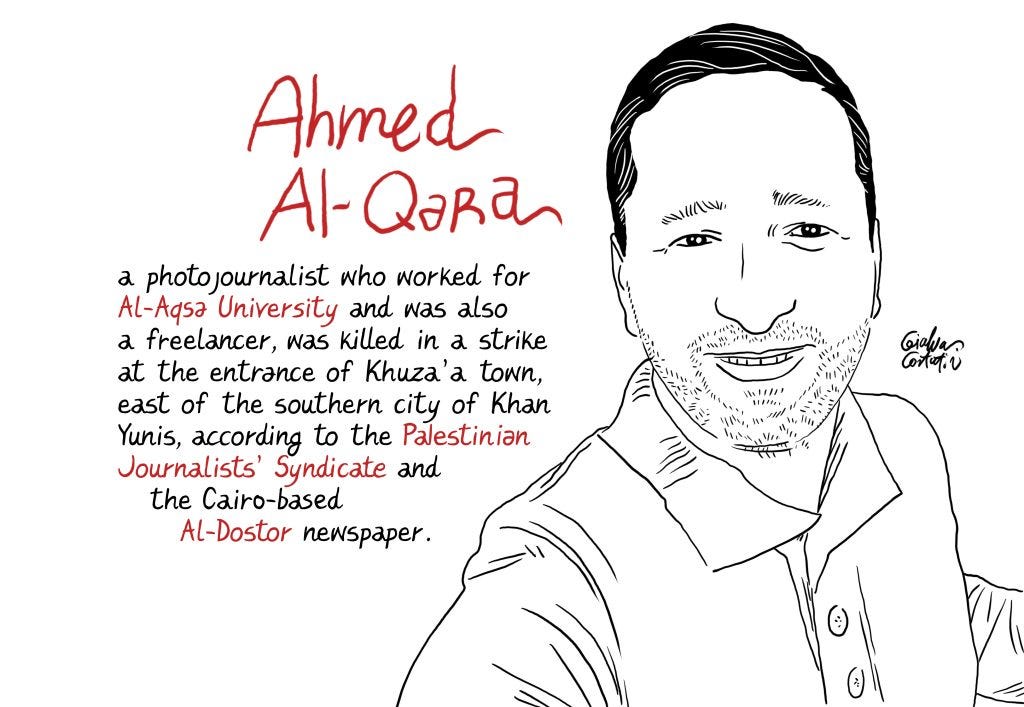 Ahmed
Al-Qara
a photojournalist who worked for
Al-Aqsa University and was also
a freelancer, was killed in a strike
at the entrance of Khuza'a town,
east of the southern city of Khan
Yunis, according to the Palestinian
Journalists' Syndicate and
the Cairo-based
Al-Dostor newspaper.